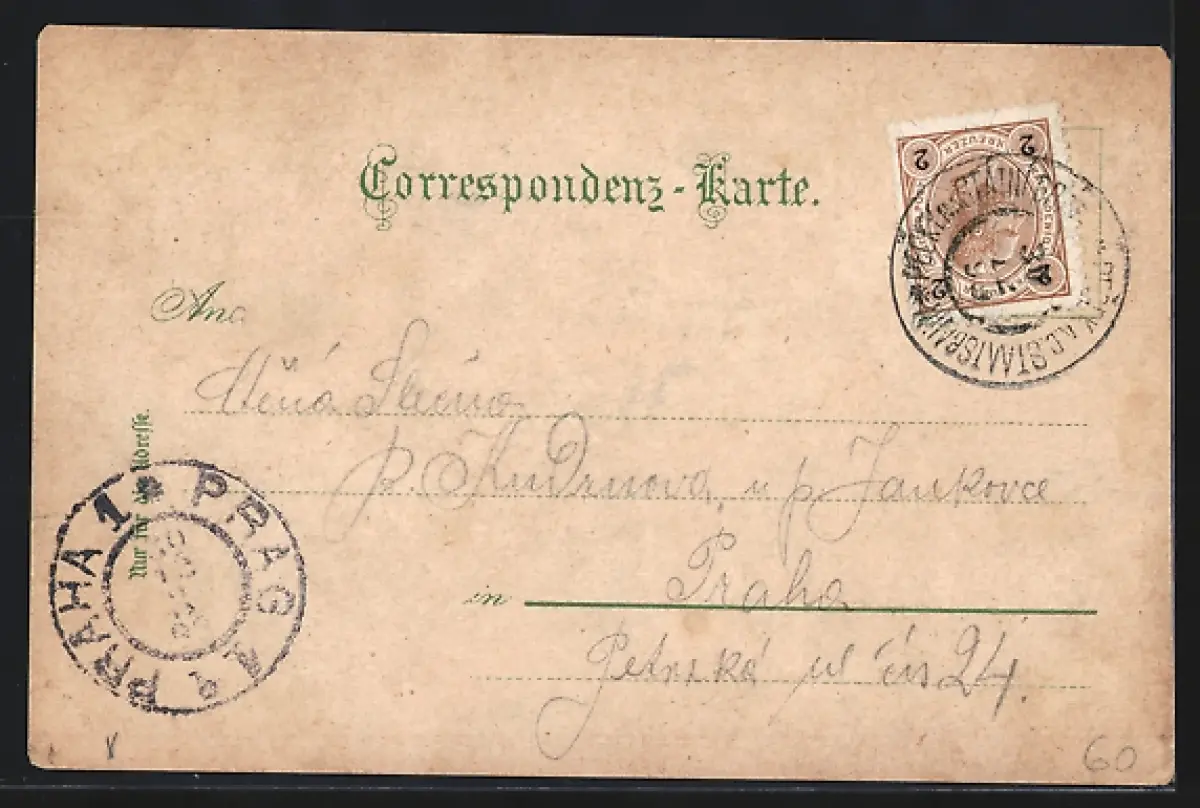 Correspondenz-Karte.
2 KREUZER 2
An
Slečna
p. Kudrnova u p. Jankovce
in Praha
Petrská ul čís 24.
Nur für die Adresse.
PRAG 1 PRAHA 1
K.K. STAATSBAHN
60